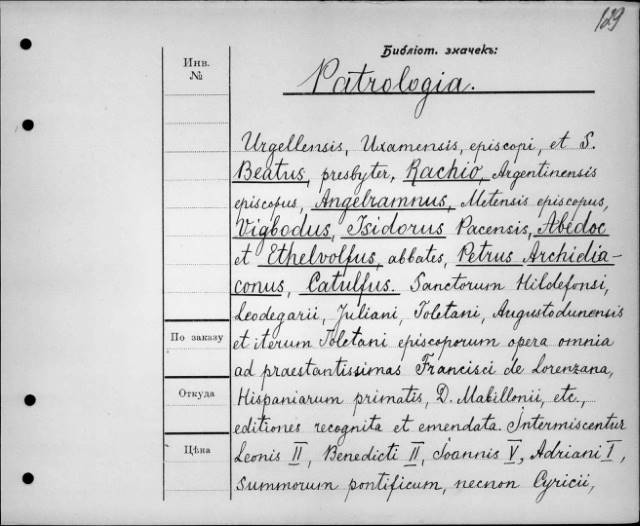 129
Библіот. значекъ:
Инв.
№
Patrologia.
Urgellensis, Uxamensis, episcopi, et S.
Beatus, presbyter, Rachio, Argentinensis
episcopus, Angelramnus, Metensis episcopus,
Vigbodus, Isidorus Pacensis, Abedoc
et Ethelvolfus, abbates, Petrus Archidia-
conus, Catulfus. Sanctorum Hildefonsi,
Leodegarii, Juliani, Toletani, Augustodunensis
et iterum Toletani episcoporum opera omnia
ad praestantissimas Francisci de Lorenzana,
Hispaniarum primatis, D. Mabillonii, etc.,
editiones recognita et emendata. Intermiscentur
Leonis II, Benedicti II, Joannis V, Adriani I,
summorum pontificum, necnon Cyricii,
По заказу
Откуда
Цѣна